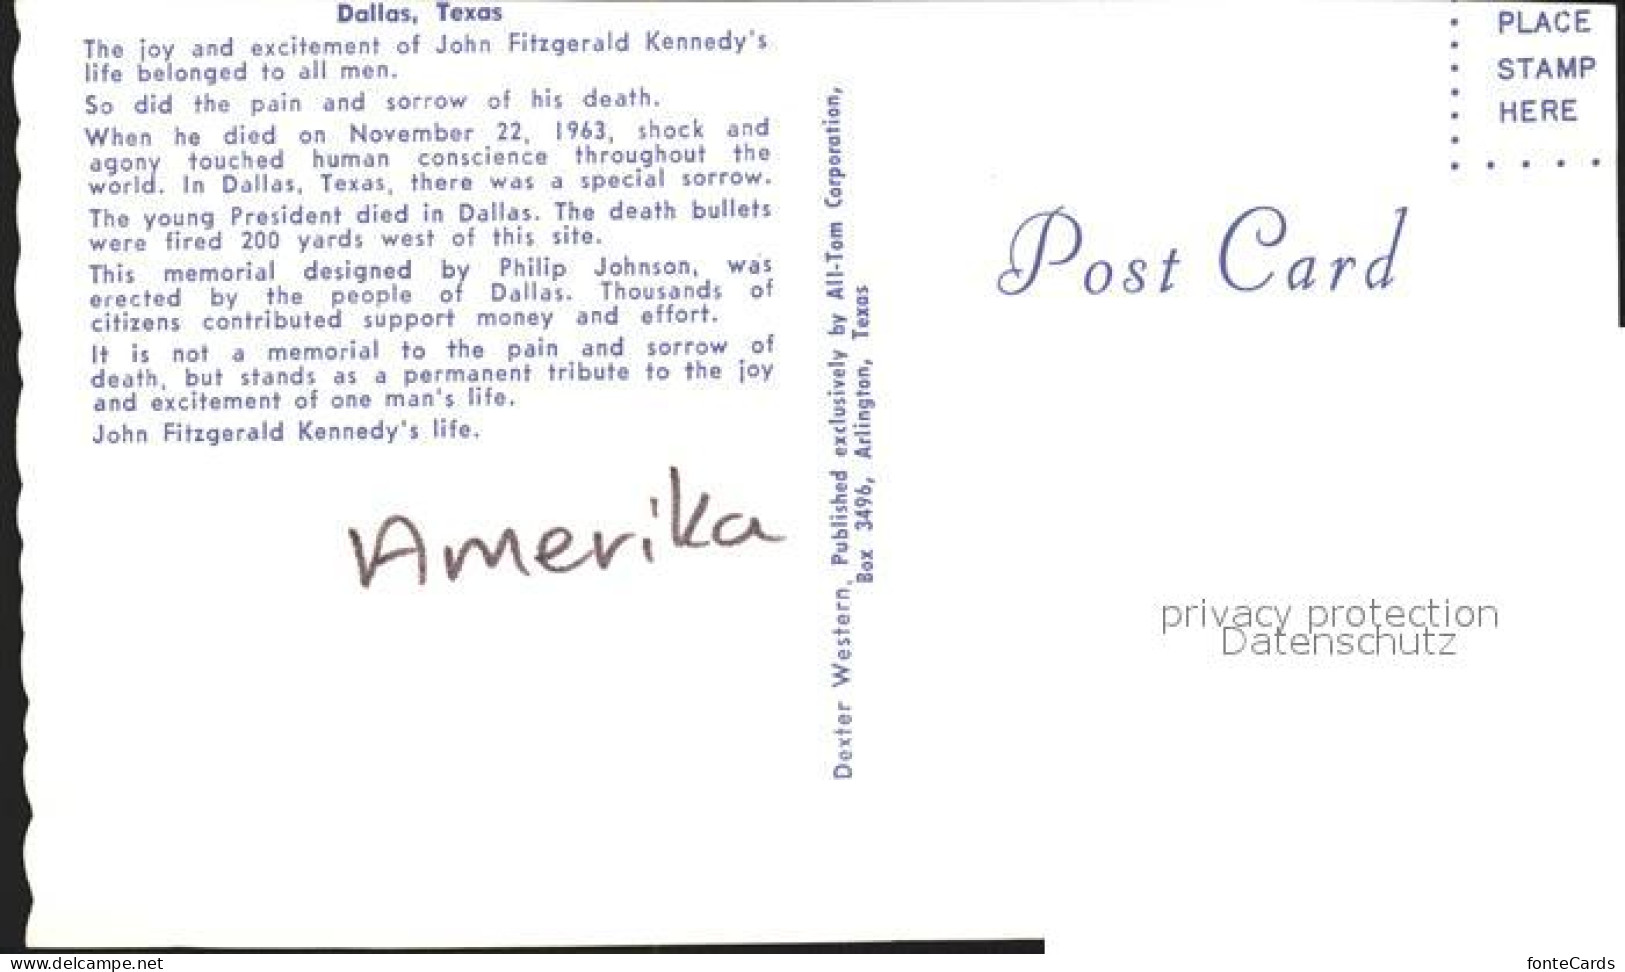 Dallas, Texas
The joy and excitement of John Fitzgerald Kennedy's
life belonged to all men.
So did the pain and sorrow of his death.
When he died on November 22, 1963, shock and
agony touched human conscience throughout the
world. In Dallas, Texas, there was a special sorrow.
The young President died in Dallas. The death bullets
were fired 200 yards west of this site.
This memorial designed by Philip Johnson, was
erected by the people of Dallas. Thousands of
citizens contributed support money and effort.
It is not a memorial to the pain and sorrow of
death, but stands as a permanent tribute to the joy
and excitement of one man's life.
John Fitzgerald Kennedy's life.
Amerika
Dexter Western, Published exclusively by All-Tom Corporation,
Box 3496, Arlington, Texas
PLACE
STAMP
HERE
Post Card
privacy protection
Datenschutz
www.delcampe.net
fonteCards